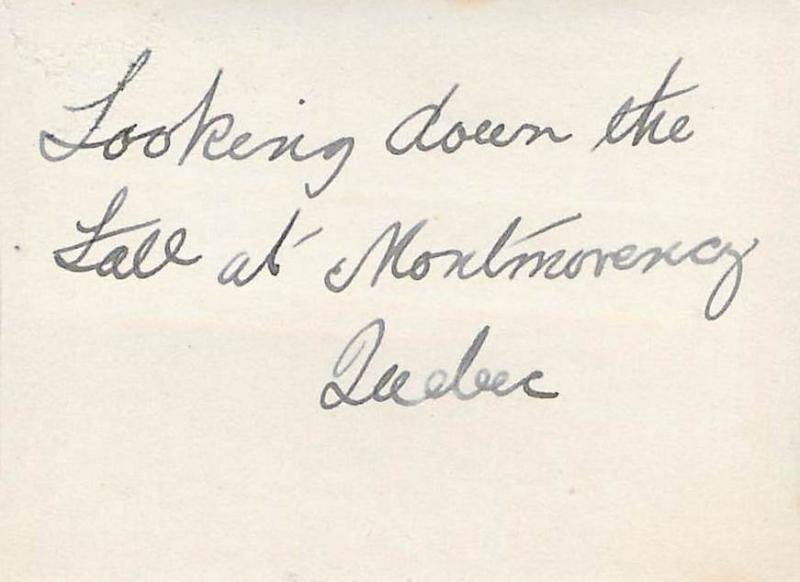 Looking down the
Fall at Montmorency
Quebec